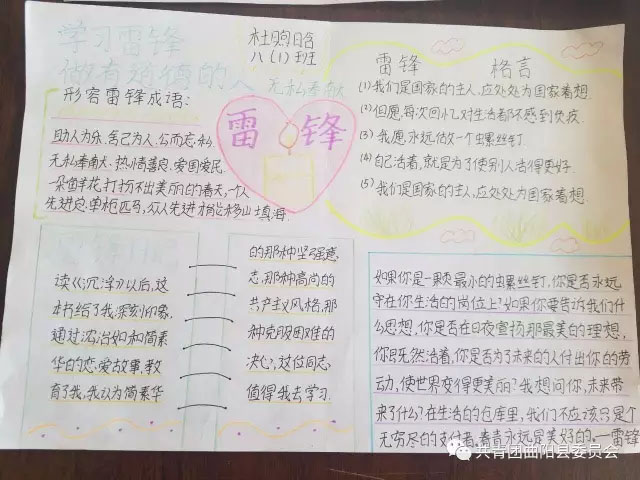 学习雷锋
做有道德的人
无私奉献
八(1)班
形容雷锋成语:
助人为乐,舍己为人,公而忘私,
无私奉献,热情善良,爱国爱民.
一朵鲜花打扮不出美丽的春天,一个人
先进总单枪匹马,众人先进才能移山填海.
雷锋
雷锋 格言
(1)我们是国家的主人,应处处为国家着想.
(2)但愿,每次回忆,对生活都不感到负疚.
(3)我愿永远做一个螺丝钉.
(4)自己活着,就是为了使别人活得更好.
(5)我们是国家的主人,应处处为国家着想.
读《沉浮》以后,这
本书给了我深刻印象,
通过沈浩如和简素
华的恋爱故事,教
育了我,我认为简素华
的那种坚强意
志,那种高尚的
共产主义风格,那
种克服困难的
决心,这位同志
值得我去学习.
如果你是一颗最小的螺丝钉,你是否永远
守在你生活的岗位上?如果你要告诉我们什
么思想,你是否在日夜宣扬那最美的理想,
你既然活着,你是否为了未来的人付出你的劳
动,使世界变得更美丽?我想问你,未来带
来了什么?在生活的仓库里,我们不应该只是个
无穷尽的支付者.青春永远是美好的.—雷锋
共青团曲阳县委员会